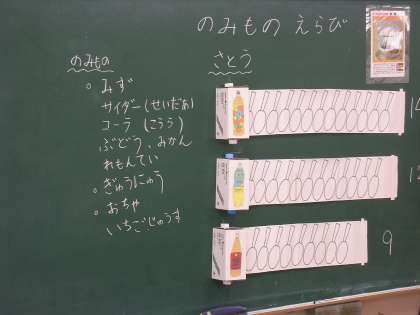 のみもの えらび
のみもの
○みず
サイダー(せいだあ)
コーラ (こうら)
ぶどう、みかん
れもんてい
○ぎゅうにゅう
○おちゃ
いちごじゅうす
さとう
9